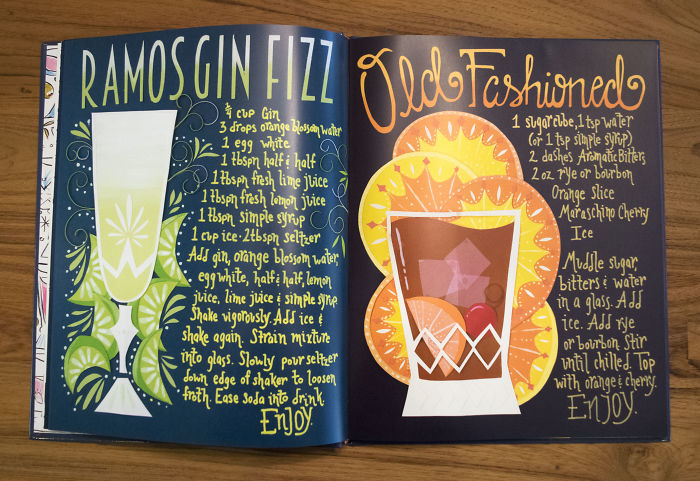 RAMOS GIN FIZZ
¼ cup Gin
3 drops orange blossom water
1 egg white
1 tbspn half & half
1 tbspn fresh lime juice
1 tbspn fresh lemon juice
1 tbspn simple syrup
1 cup ice · 2 tbspn seltzer
Add gin, orange blossom water,
egg white, half & half, lemon
juice, lime juice & simple syrup.
Shake vigorously. Add ice &
shake again. Strain mixture
into glass. Slowly pour seltzer
down edge of shaker to loosen
froth. Ease soda into drink.
Enjoy.
Old Fashioned
1 sugar cube, 1 tsp water
(or 1 tsp simple syrup)
2 dashes Aromatic Bitters,
2 oz rye or bourbon
Orange Slice
Maraschino Cherry
Ice
Muddle sugar,
bitters & water
in a glass. Add
ice. Add rye
or bourbon. Stir
until chilled. Top
with orange & cherry.
Enjoy.